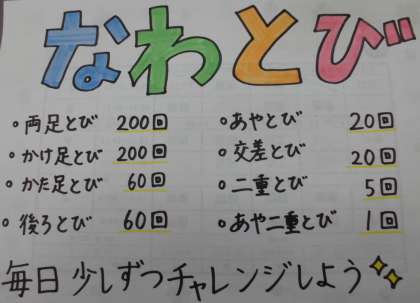 なわとび
・両足とび 200回
・かけ足とび 200回
・かた足とび 60回
・後ろとび 60回
・あやとび 20回
・交差とび 20回
・二重とび 5回
・あや二重とび 1回
毎日少しずつチャレンジしよう